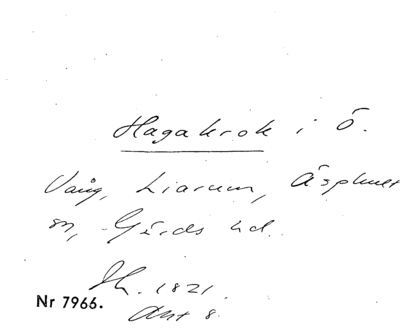 Hagakrok i Ö.
Vång, Liarum, Äsphult
sn, Gärds hd.
Sk. 1821.
Akt 8.
Nr 7966.